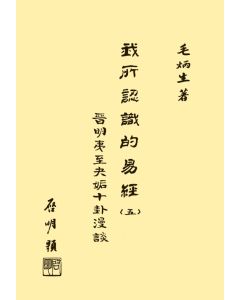 毛炳生著
我所認識的易經(五)
晉明夷至夬姤十卦漫談